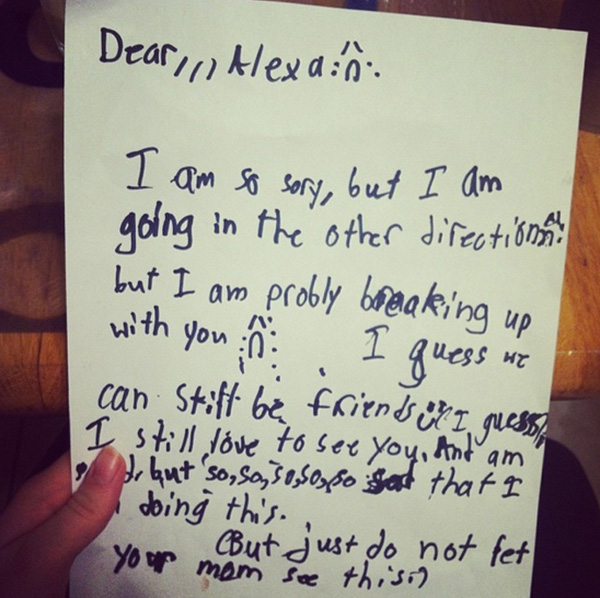 Dear,,, Alexa
I am so sory, but I am
going in the other direction
but I am probly breaking up
with you
I guess we
can still be friends I guess
I still love to see you. And am
but so, so, so, so, so sad that I
doing this.
(But just do not let
your mom see this:)